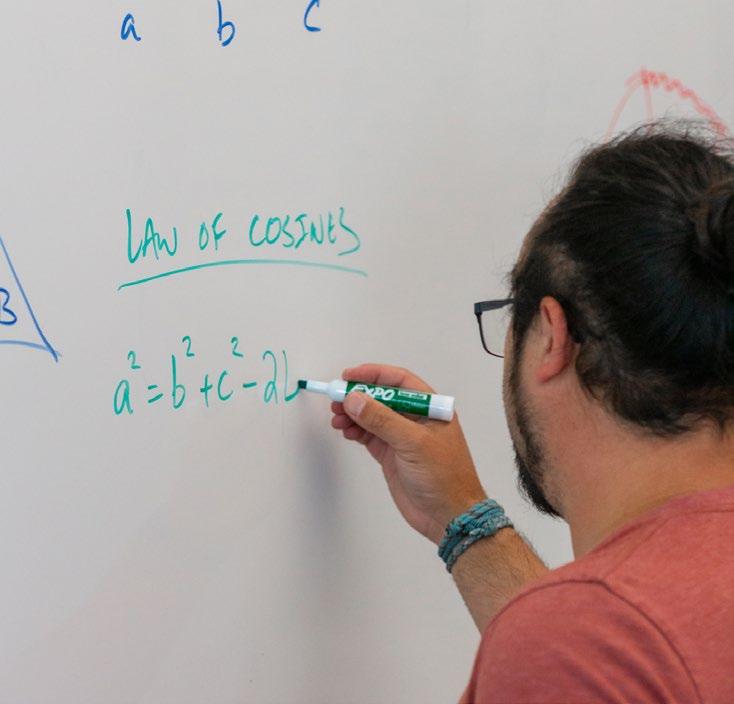 a b c
LAW OF COSINES
B
a² = b² + c² - 2b
EXPO